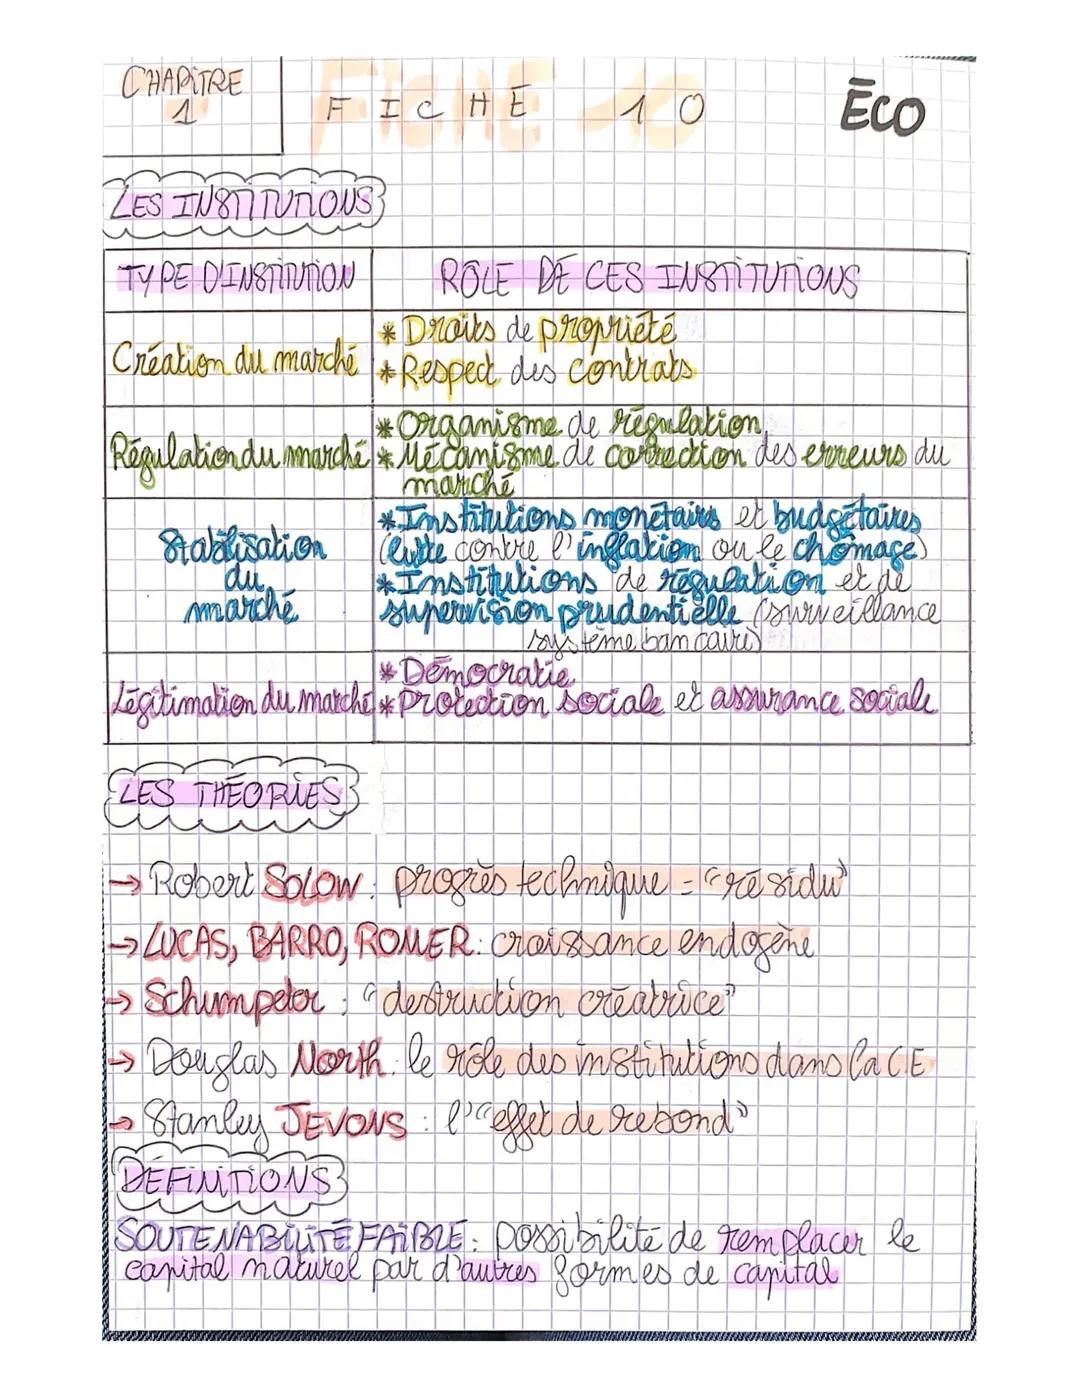 CHAPITRE
1
FICHE 10
ÉCO
LES INSTITUTIONS
TYPE D'INSTITUTION
RÔLE DE CES INSTITUTIONS
Création du marché
* Droits de propriété
* Respect des contrats
Régulation du marché
* Organisme de régulation
* Mécanisme de correction des erreurs du
marché
Stabilisation
du
marché
* Institutions monétaires et budgétaires
(lutte contre l'inflation ou le chômage)
* Institutions de régulation et de
supervision prudentielle (surveillance
système bancaire)
Légitimation du marché
* Démocratie
* Protection sociale et assurance sociale
LES THÉORIES
→ Robert SOLOW : progrès technique = "résidu"
→ LUCAS, BARRO, ROMER : croissance endogène
→ Schumpeter : "destruction créatrice"
→ Douglas North : le rôle des institutions dans la C.E
→ Stanley JEVONS : l'"effet de rebond"
DÉFINITIONS
SOUTENABILITÉ FAIBLE : possibilité de remplacer le
capital naturel par d'autres formes de capital